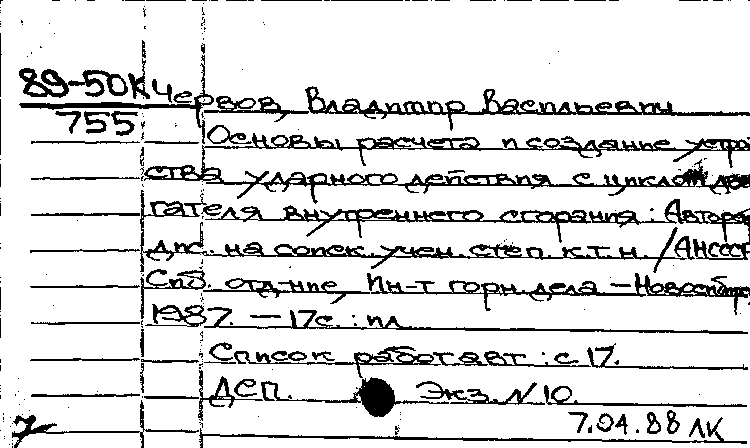 89-50К Червов, Владимир Васильевич
755
Основы расчета и создание устрой
ства ударного действия с циклом дви
гателя внутреннего сгорания : Автореф
дис. на соиск. учен. степ. к.т.н. / АН СССР
Сиб. отд-ние, Ин-т горн. дела – Новосибирс
1987. – 17с. : ил
Список работ авт : с. 17.
ДСП. Экз. N 10.
7.04.88 ЛК